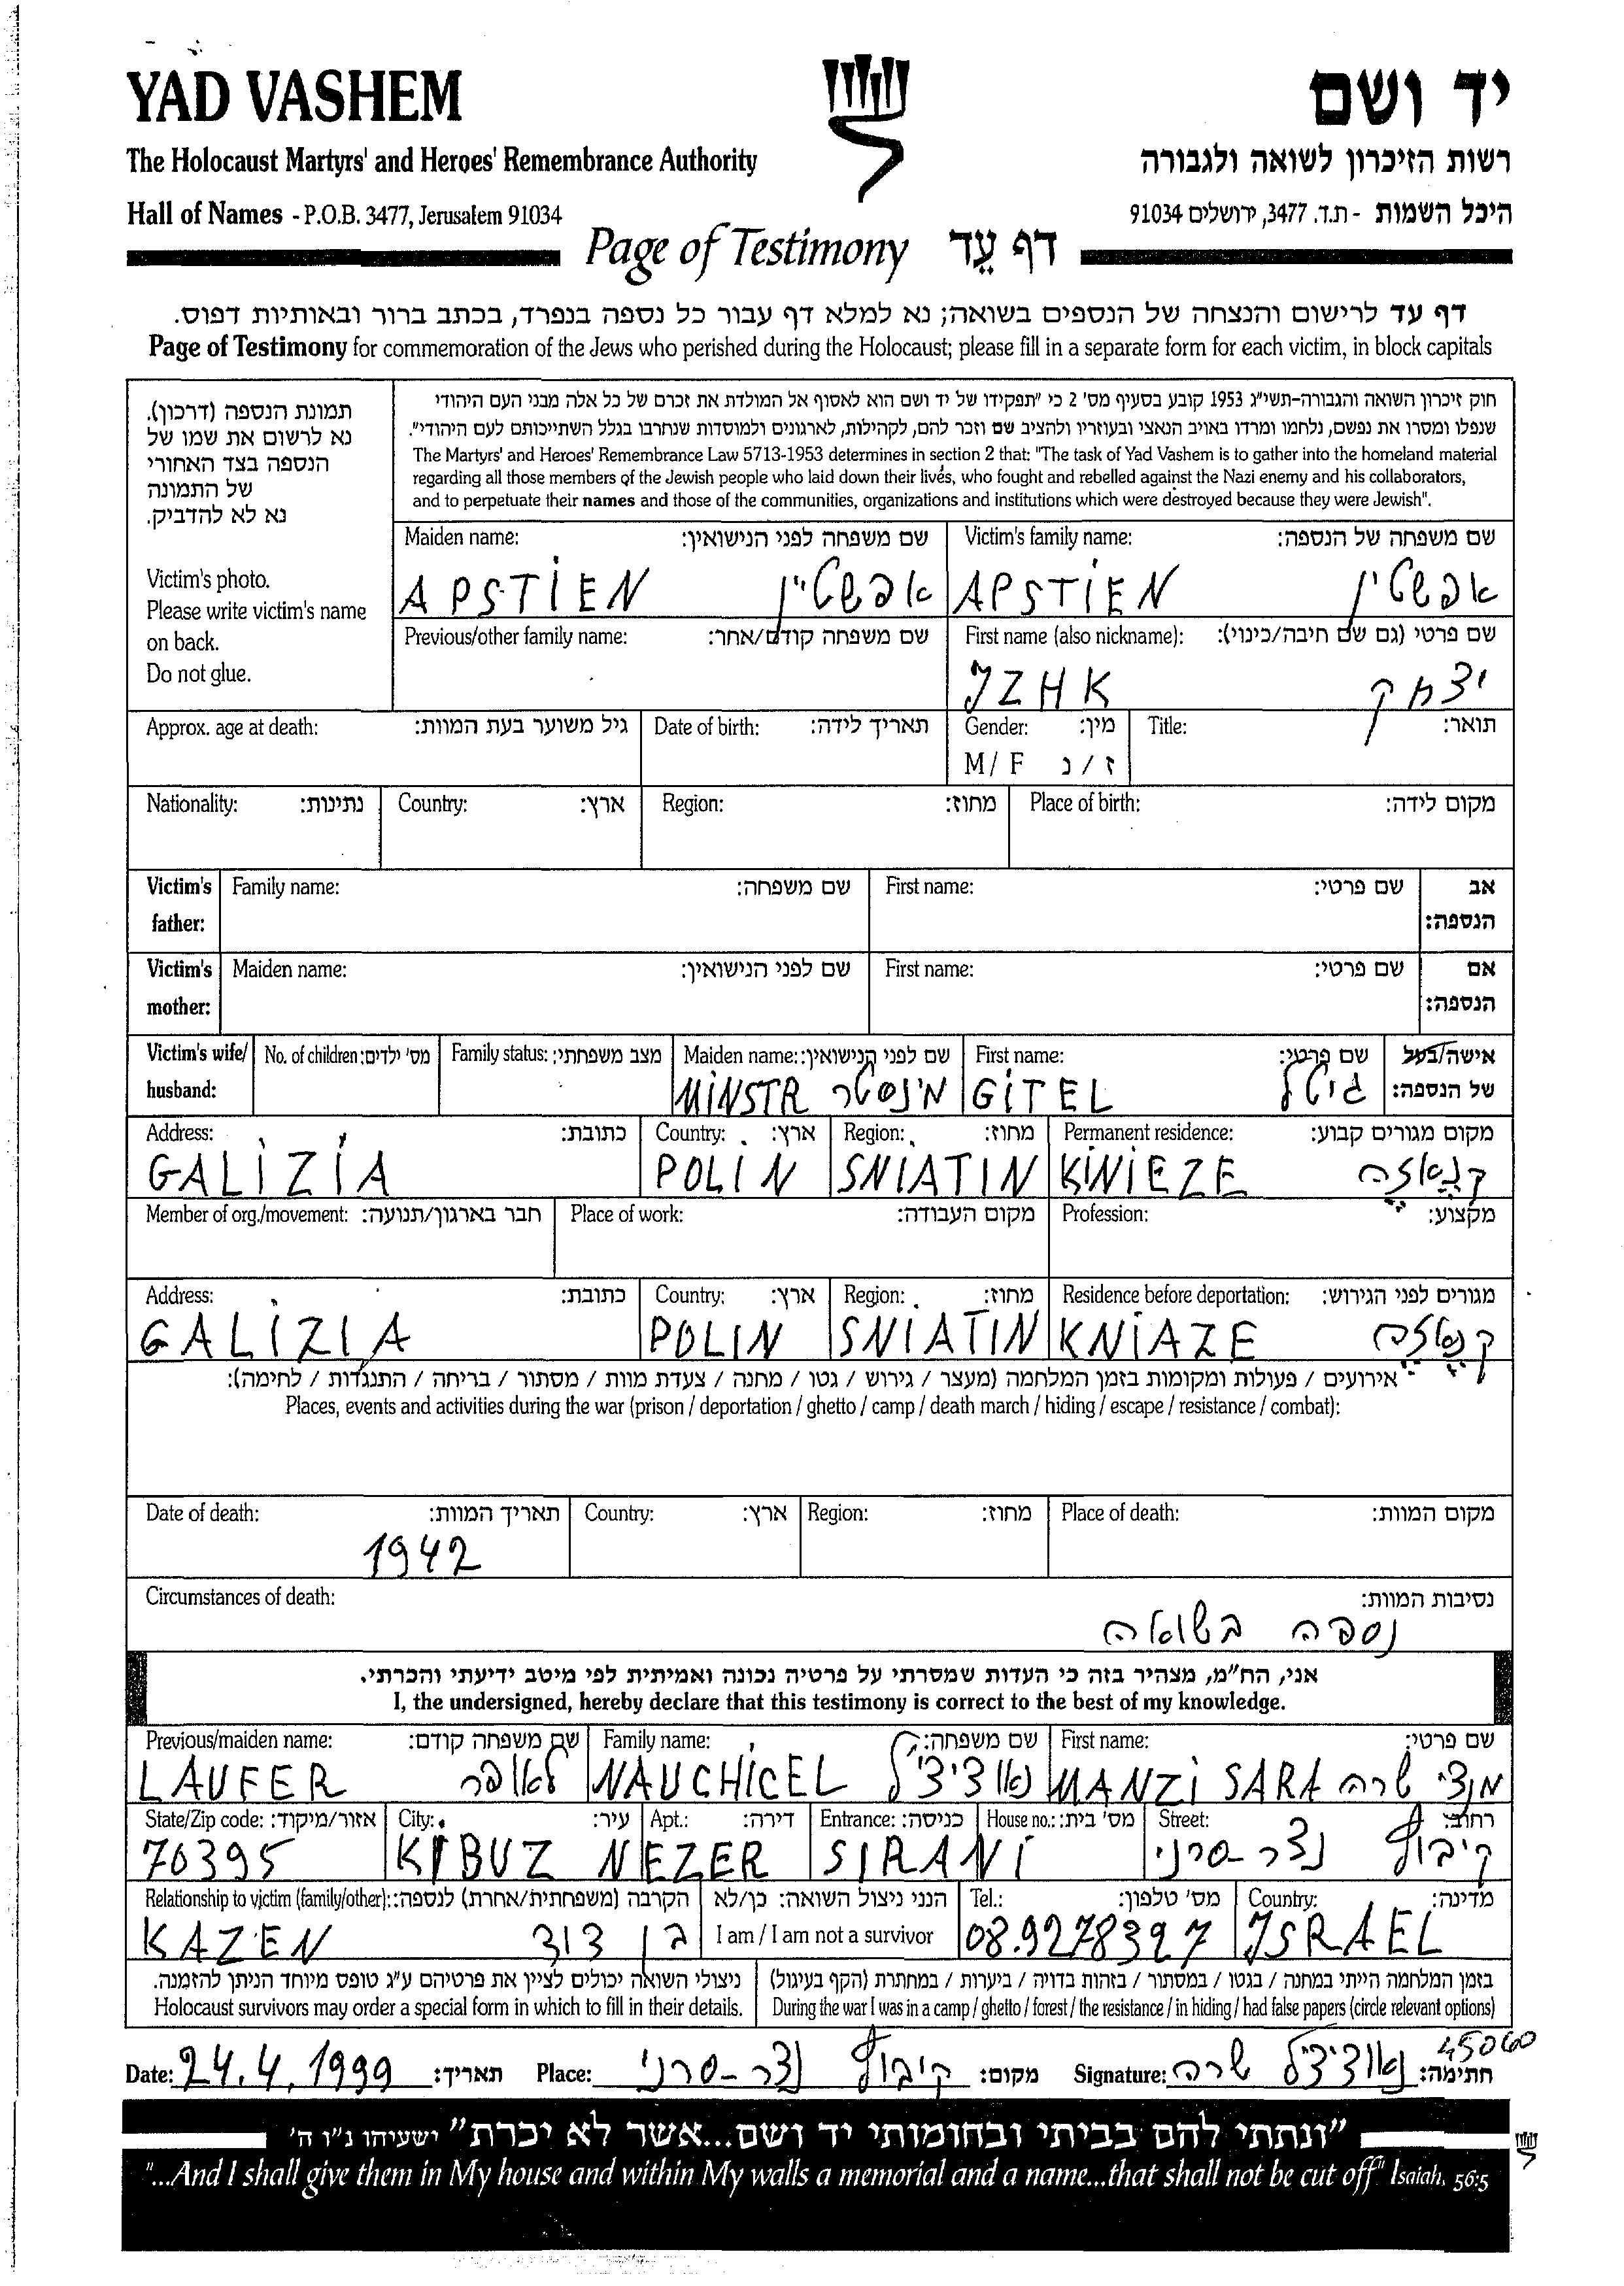 YAD VASHEM יד ושם
The Holocaust Martyrs' and Heroes' Remembrance Authority רשות הזיכרון לשואה ולגבורה
Hall of Names - P.O.B. 3477, Jerusalem 91034 היכל השמות - ת.ד. 3477, ירושלים 91034
Page of Testimony דף עֵד
דף עד לרישום והנצחה של הנספים בשואה; נא למלא דף עבור כל נספה בנפרד, בכתב ברור ובאותיות דפוס.
Page of Testimony for commemoration of the Jews who perished during the Holocaust; please fill in a separate form for each victim, in block capitals
תמונת הנספה (דרכון).
נא לרשום את שמו של
הנספה בצד האחורי
של התמונה
נא לא להדביק.
Victim's photo.
Please write victim's name
on back.
Do not glue.
חוק זיכרון השואה והגבורה-תשי"ג 1953 קובע בסעיף מס' 2 כי "תפקידו של יד ושם הוא לאסוף אל המולדת את זכרם של כל אלה מבני העם היהודי
שנפלו ומסרו את נפשם, נלחמו ומרדו באויב הנאצי ובעוזריו ולהציב שם וזכר להם, לקהילות, לארגונים ולמוסדות שנחרבו בגלל השתייכותם לעם היהודי".
The Martyrs' and Heroes' Remembrance Law 5713-1953 determines in section 2 that: "The task of Yad Vashem is to gather into the homeland material
regarding all those members of the Jewish people who laid down their lives, who fought and rebelled against the Nazi enemy and his collaborators,
and to perpetuate their names and those of the communities, organizations and institutions which were destroyed because they were Jewish".
Maiden name: שם משפחה לפני הנישואין: Victim's family name: שם משפחה של הנספה:
APSTIEN אפשטיין APSTIEN אפשטין
Previous/other family name: שם משפחה קודם/אחר: First name (also nickname): שם פרטי (גם שם חיבה/כינוי):
JZHK יצחק
Approx. age at death: גיל משוער בעת המוות: Date of birth: תאריך לידה: Gender: מין: Title: תואר:
M / F ז / נ
Nationality: נתינות: Country: ארץ: Region: מחוז: Place of birth: מקום לידה:
Victim's Family name: שם משפחה: First name: שם פרטי: אב
father: הנספה:
Victim's Maiden name: שם לפני הנישואין: First name: שם פרטי: אם
mother: הנספה:
Victim's wife/ No. of children: מס' ילדים: Family status: מצב משפחתי: Maiden name: שם לפני הנישואין: First name: שם פרטי: אישה/בעל
husband: MINSTR מינסטר GITEL גיטל של הנספה:
Address: כתובת: Country: ארץ: Region: מחוז: Permanent residence: מקום מגורים קבוע:
GALIZIA POLIN SNIATIN KINIEZE קניאזה
Member of org./movement: חבר בארגון/תנועה: Place of work: מקום העבודה: Profession: מקצוע:
Address: כתובת: Country: ארץ: Region: מחוז: Residence before deportation: מגורים לפני הגירוש:
GALIZIA POLIN SNIATIN KNIAZE
אירועים / פעולות ומקומות בזמן המלחמה (מעצר / גירוש / גטו / מחנה / צעדת מוות / מסתור / בריחה / התנגדות / לחימה):
Places, events and activities during the war (prison / deportation / ghetto / camp / death march / hiding / escape / resistance / combat):
Date of death: תאריך המוות: Country: ארץ: Region: מחוז: Place of death: מקום המוות:
1942
Circumstances of death: נסיבות המוות:
נספה בשואה
אני, הח"מ, מצהיר בזה כי העדות שמסרתי על פרטיה נכונה ואמיתית לפי מיטב ידיעתי והכרתי.
I, the undersigned, hereby declare that this testimony is correct to the best of my knowledge.
Previous/maiden name: שם משפחה קודם: Family name: שם משפחה: First name: שם פרטי:
LAUFER לאופר NAUCHICEL נאוציצל MANZI SARA מנצי שרה
State/Zip code: אזור/מיקוד: City: עיר: Apt.: דירה: Entrance: כניסה: House no.: מס' בית: Street: רחוב:
70395 KIBUZ NEZER SIRANI קיבוץ נצר-סרני
Relationship to victim (family/other): הקרבה (משפחתית/אחרת) לנספה: הנני ניצול השואה: כן/לא Tel.: מס' טלפון: Country: מדינה:
KAZEN בן דוד I am / I am not a survivor 08.9278397 JSRAEL
ניצולי השואה יכולים לציין את פרטיהם ע"ג טופס מיוחד הניתן להזמנה. בזמן המלחמה הייתי במחנה / בגטו / במסתור / בזהות בדויה / ביערות / במחתרת (הקף בעיגול)
Holocaust survivors may order a special form in which to fill in their details. During the war I was in a camp / ghetto / forest / the resistance / in hiding / had false papers (circle relevant options)
45060
Date: 24.4.1999 תאריך: Place: קיבוץ נצר-סרני מקום: Signature: נאוציצל שרה חתימה:
"ונתתי להם בביתי ובחומותי יד ושם...אשר לא יכרת" ישעיהו נ"ו ה'
"...And I shall give them in My house and within My walls a memorial and a name...that shall not be cut off" Isaiah, 56:5